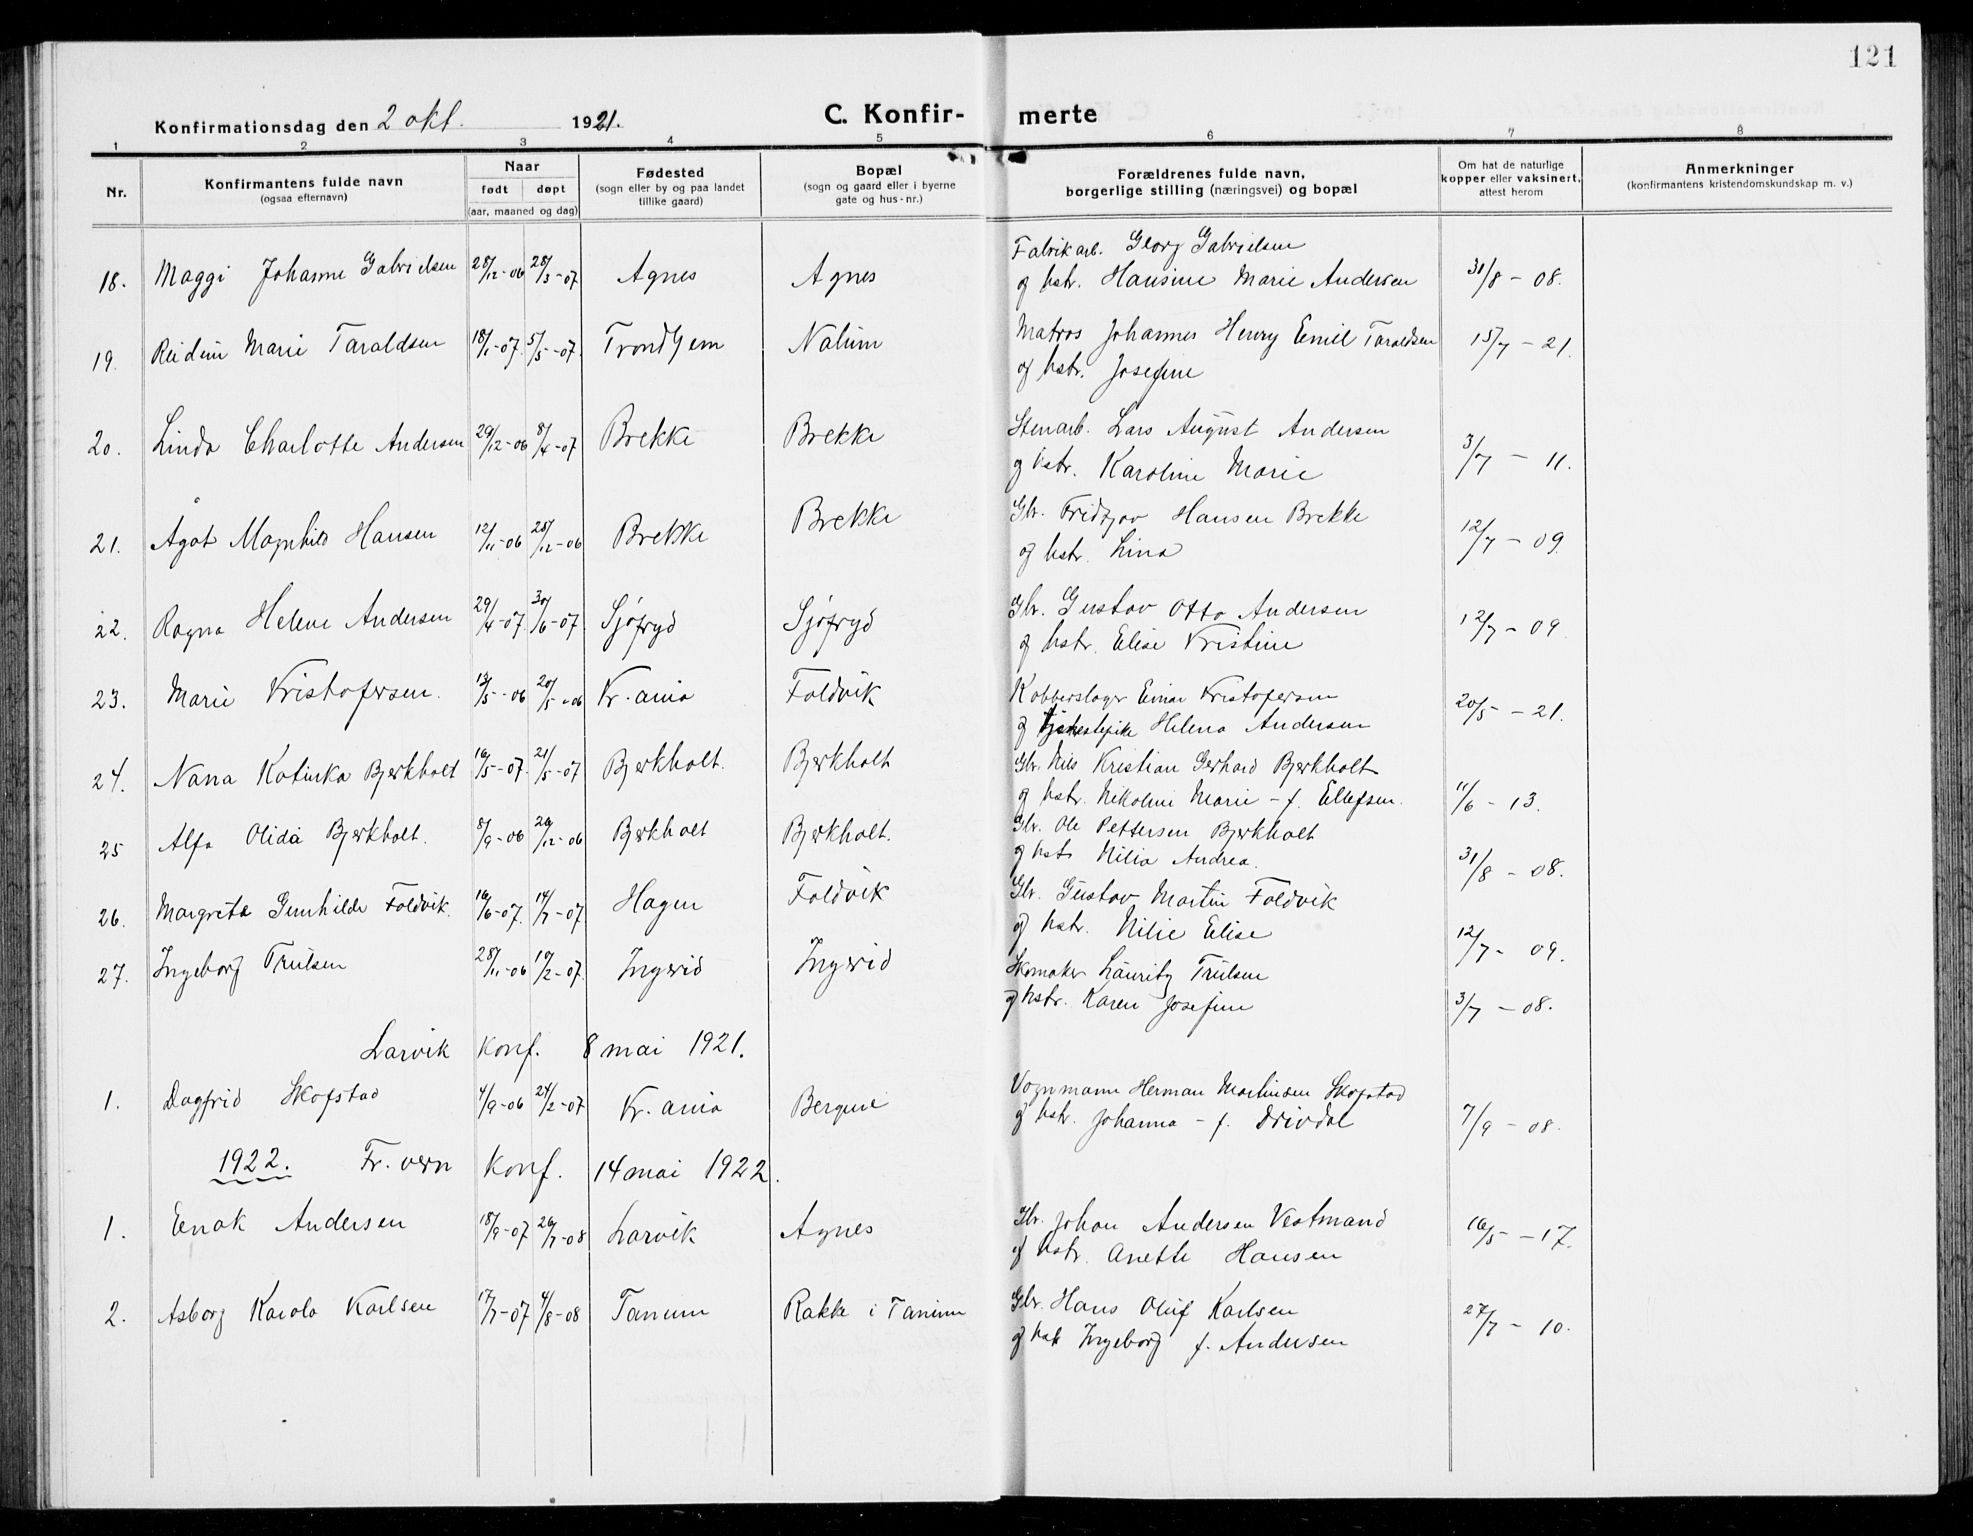 121
Konfirmationsdag den 2 okt. 1921. C. Konfir- merte
1 2 3 4 5 6 7 8
Nr. Konfirmantens fulde navn (ogsaa efternavn) Naar født døpt (aar, maaned og dag) Fødested (sogn eller by og paa landet tillike gaard) Bopæl (sogn og gaard eller i byerne gate og hus-nr.) Forældrenes fulde navn, borgerlige stilling (næringsvei) og bopæl Om hat de naturlige kopper eller vaksinert, attest herom Anmerkninger (konfirmantens kristendomskundskap m. v.)
18. Maggi Johanne Gabrielsen 28/12-06 28/3-07 Agnes Agnes Fabrikarb. Georg Gabrielsen 31/8-08.
og hstr. Hansine Marie Andersen
19. Reidun Marie Taraldsen 18/1-07. 5/5-07. Trondhjem Nalum Matros Johannes Henry Emil Taraldsen 15/7-21.
og hstr. Josefine
20. Linda Charlotte Andersen 29/12-06 8/4-07 Brekke Brekke Stenarb. Lars August Andersen 3/7-11.
og hstr. Karoline Marie
21. Ågot Magnhild Hansen 12/11-06 25/12-06 Brekke Brekke Gbr. Fridtjov Hansen Brekke 12/7-09.
og hstr. Lina
22. Ragna Helene Andersen 29/4-07. 30/6-07. Sjøfryd Sjøfryd Gbr. Gustav Otto Andersen 12/7-09
og hstr. Elise Kristine
23. Marie Kristofersen. 13/5-06 20/5-06 Kr.ania Foldvik Kobberslager Einar Kristofersen 20/5-21.
og tjenestepike Helena Andersen
24. Nana Katinka Bjerkholt 16/5-07. 21/5-07 Bjerkholt. Bjerkholt Gbr. Nils Kristian Gerhard Bjerkholt 11/6-13.
og hstr. Nikoline Marie - f. Ellefsen.
25 Alfa Olida Bjerkholt. 8/9-06 26/12-06 Bjerkholt Bjerkholt. Gbr. Ole Pettersen Bjerkholt 31/8-08.
og hstr Nilia Andrea.
26. Margrete Gunhilde Foldvik. 16/6-07. 14/7-07 Hagen Foldvik Gbr. Gustav Martin Foldvik 12/7-09.
og hstr. Nilie Elise
27. Ingeborg Trulsen 28/11-06 10/2-07. Ingerid Ingerid Skomaker Lauritz Trulsen 3/7-08.
og hstr. Karen Josefine
Larvik Konf. 8 mai 1921.
1. Dagfrid Skofstad 4/9-06 24/2-07 Kr.ania Bergene Vognmann Herman Martinsen Skofstad 7/9-08.
og hstr. Johanna - f. Drivdal
1922. Fr.vern Konf. 14 mai 1922.
1. Enok Andersen 18/9-07 26/7-08 Larvik Agnes Gbr. Johan Andersen Vestmand 16/5-17.
og hstr. Anette Hansen
2. Asborg Karola Karlsen 17/7-07 4/8-08 Tanum Rakke i Tanum Gbr. Hans Oluf Karlsen 27/7-10.
og hstr Ingeborg f. Andersen